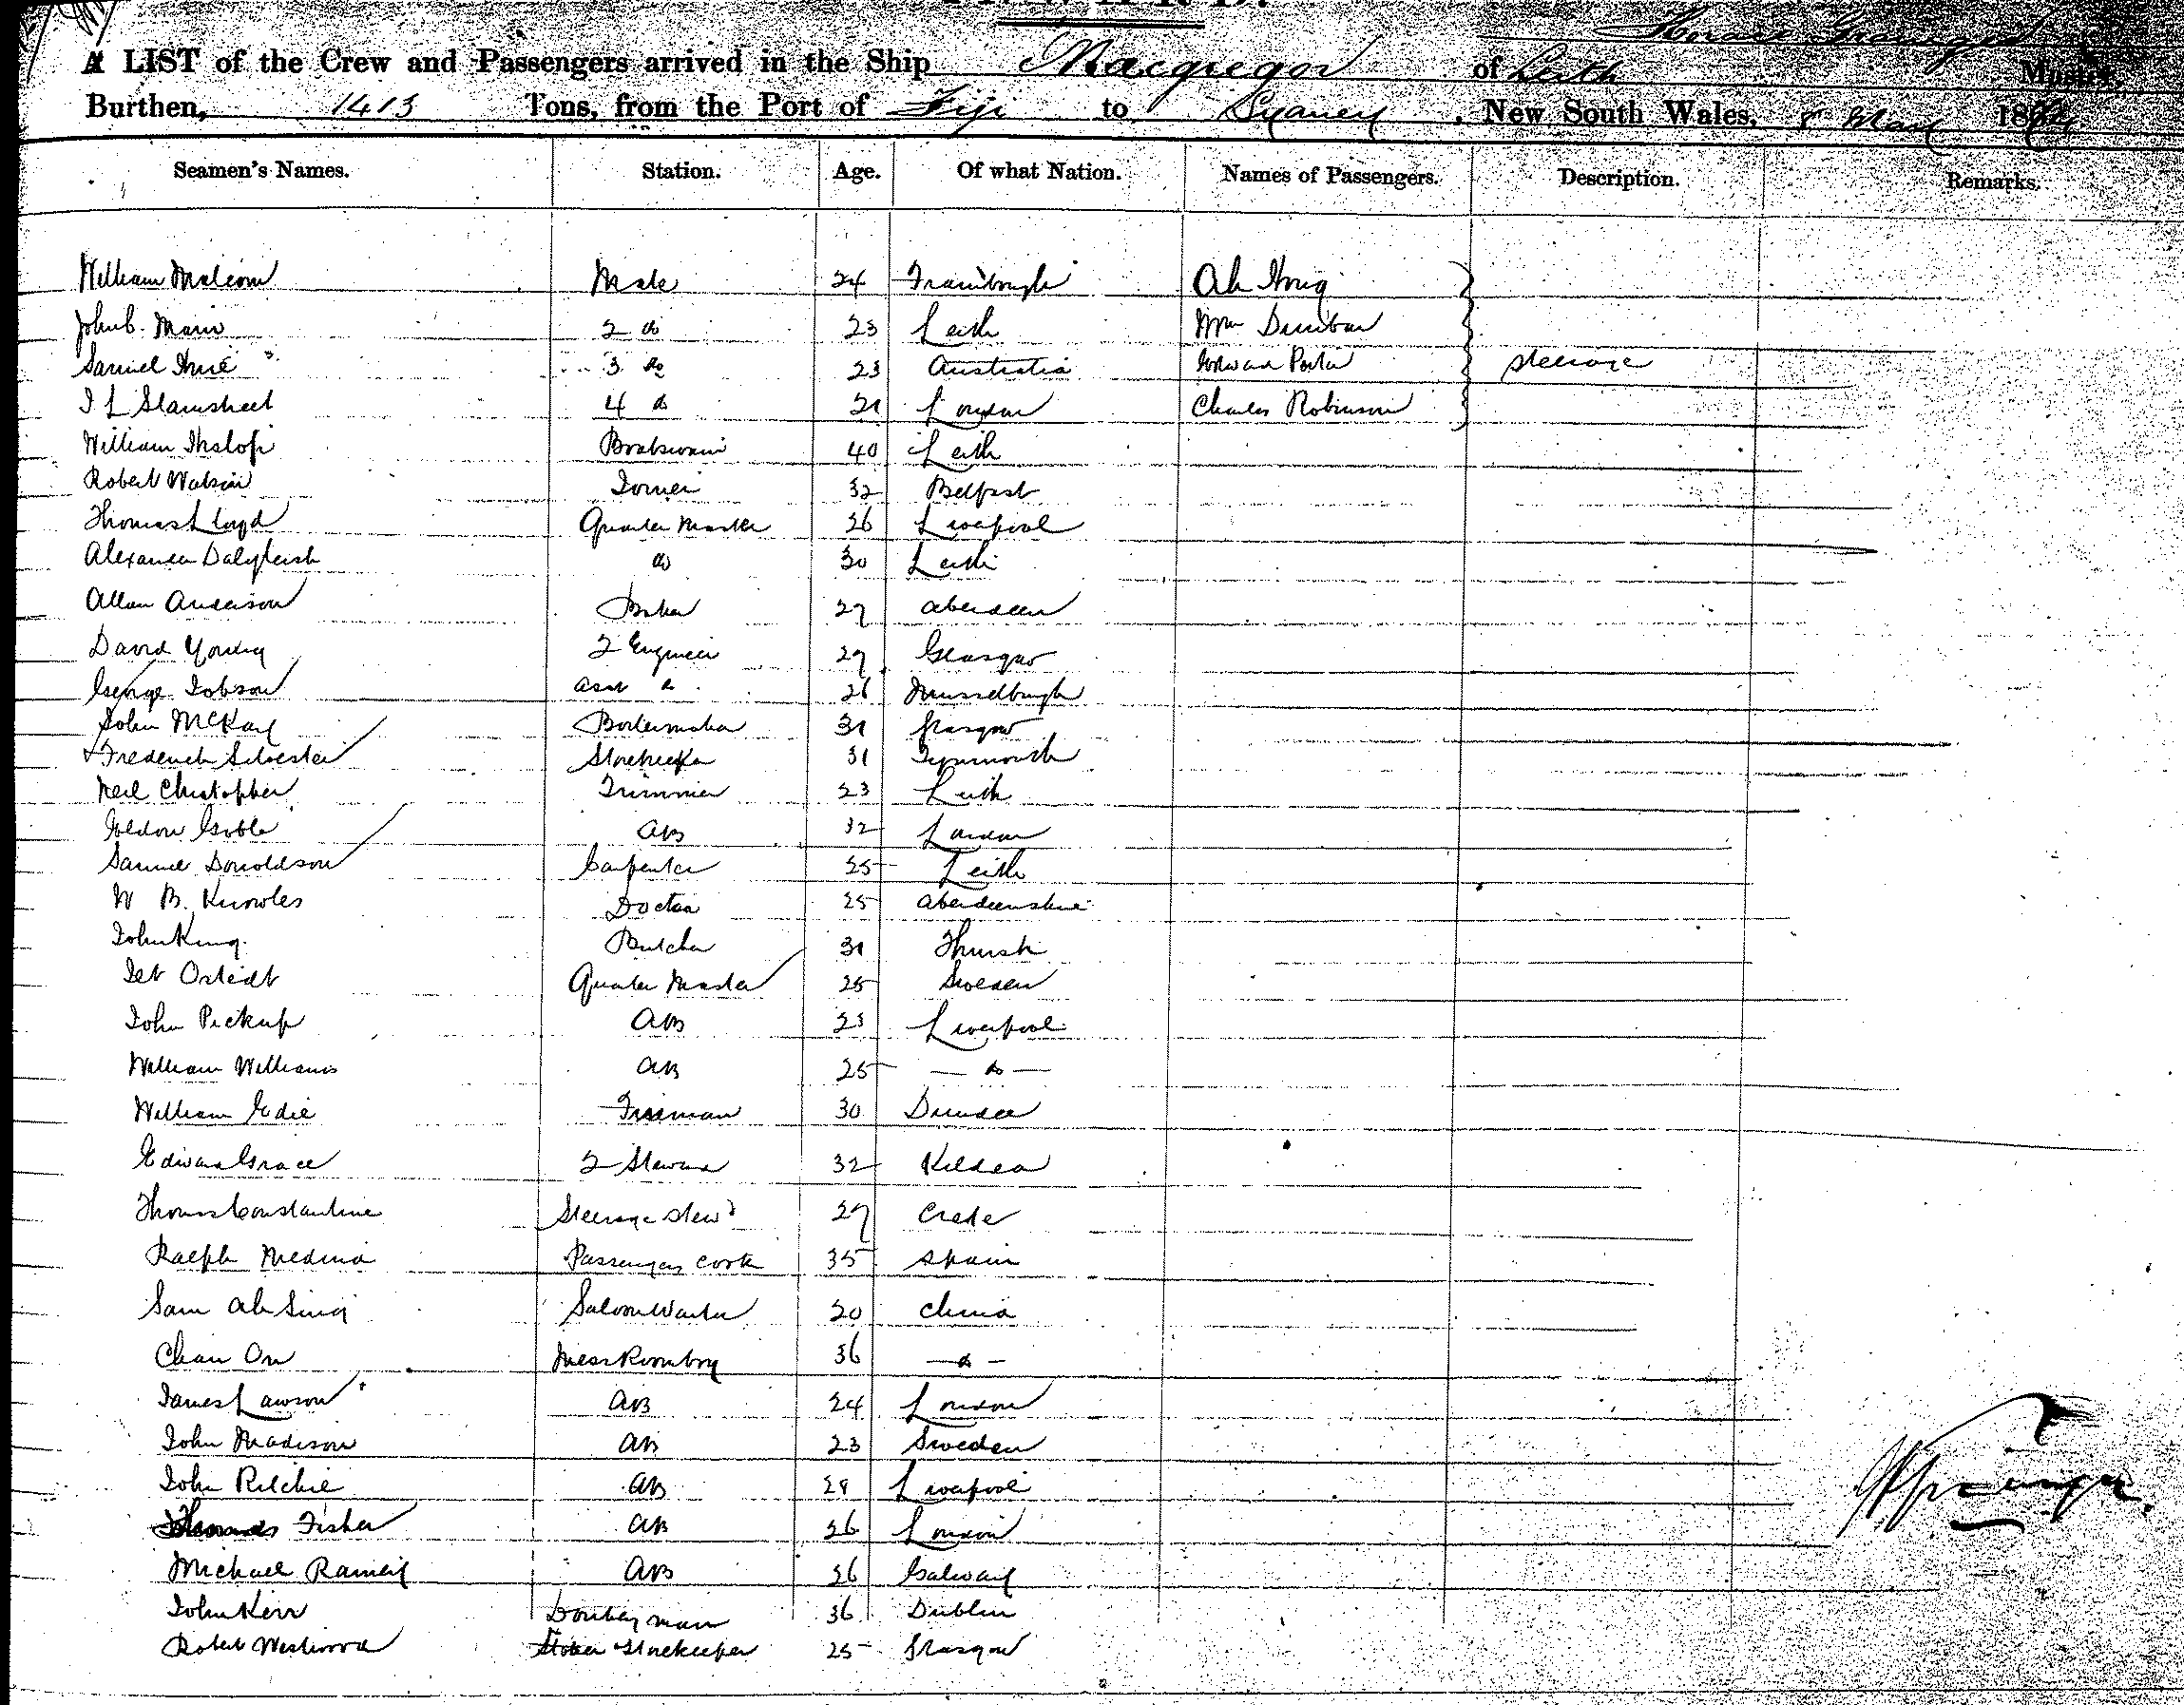 A LIST of the Crew and Passengers arrived in the Ship Macgregor of Leith Master,
Burthen, 1413 Tons, from the Port of Fiji to Sydney, New South Wales, 5 May 18
Seamen's Names. Station. Age. Of what Nation. Names of Passengers. Description. Remarks.
William Malcom Mate 24 Ah
John C. Main 2 do 23 Leith Wm Dunbar
Samuel 3 do 23 Australia Edward Porter Steerage
4 do 21 London Charles Robinson
William Boatswain 40 Leith
Robert Watson Joiner 32 Belfast
Thomas Lloyd Quarter Master 26 Liverpool
Alexander Dalgleish do 30 Leith
Allan Anderson Baker 27 Aberdeen
David Young 2 Engineer 29 Glasgow
George Dobson Asst do 26 Musselburgh
John McKay Boilermaker 31 Glasgow
Frederick Silvester Storekeeper 31 Tynmouth
Neil Christopher Trimmer 23 Leith
AB 32 London
Samuel Donoldson Carpenter 25 Leith
W B. Knowles Doctor 25 Aberdeenshire
John King Butcher 31 Thursk
Quarter Master 25 Sweden
John Pickup AB 23 Liverpool
William Williams AB 25 — do —
William Edie Fireman 30 Dundee
Edward Grace 2 Steward 32 Kildea
Thomas Constantine Steerage Stewd 29 Crete
Ralph Medina Passengers Cook 35 Spain
Sam Ah Sing Saloon Waiter 20 China
Chan On Mess Room boy 36 — do —
James Lawson AB 24 London
John Madison AB 23 Sweden
John Ritchie AB 28 Liverpool
Thomas Fisher AB 26 London
Michael Ramey AB 36 Galway
John Kerr Donkey man 36 Dublin
Robert Westwood Storekeeper 25 Glasgow